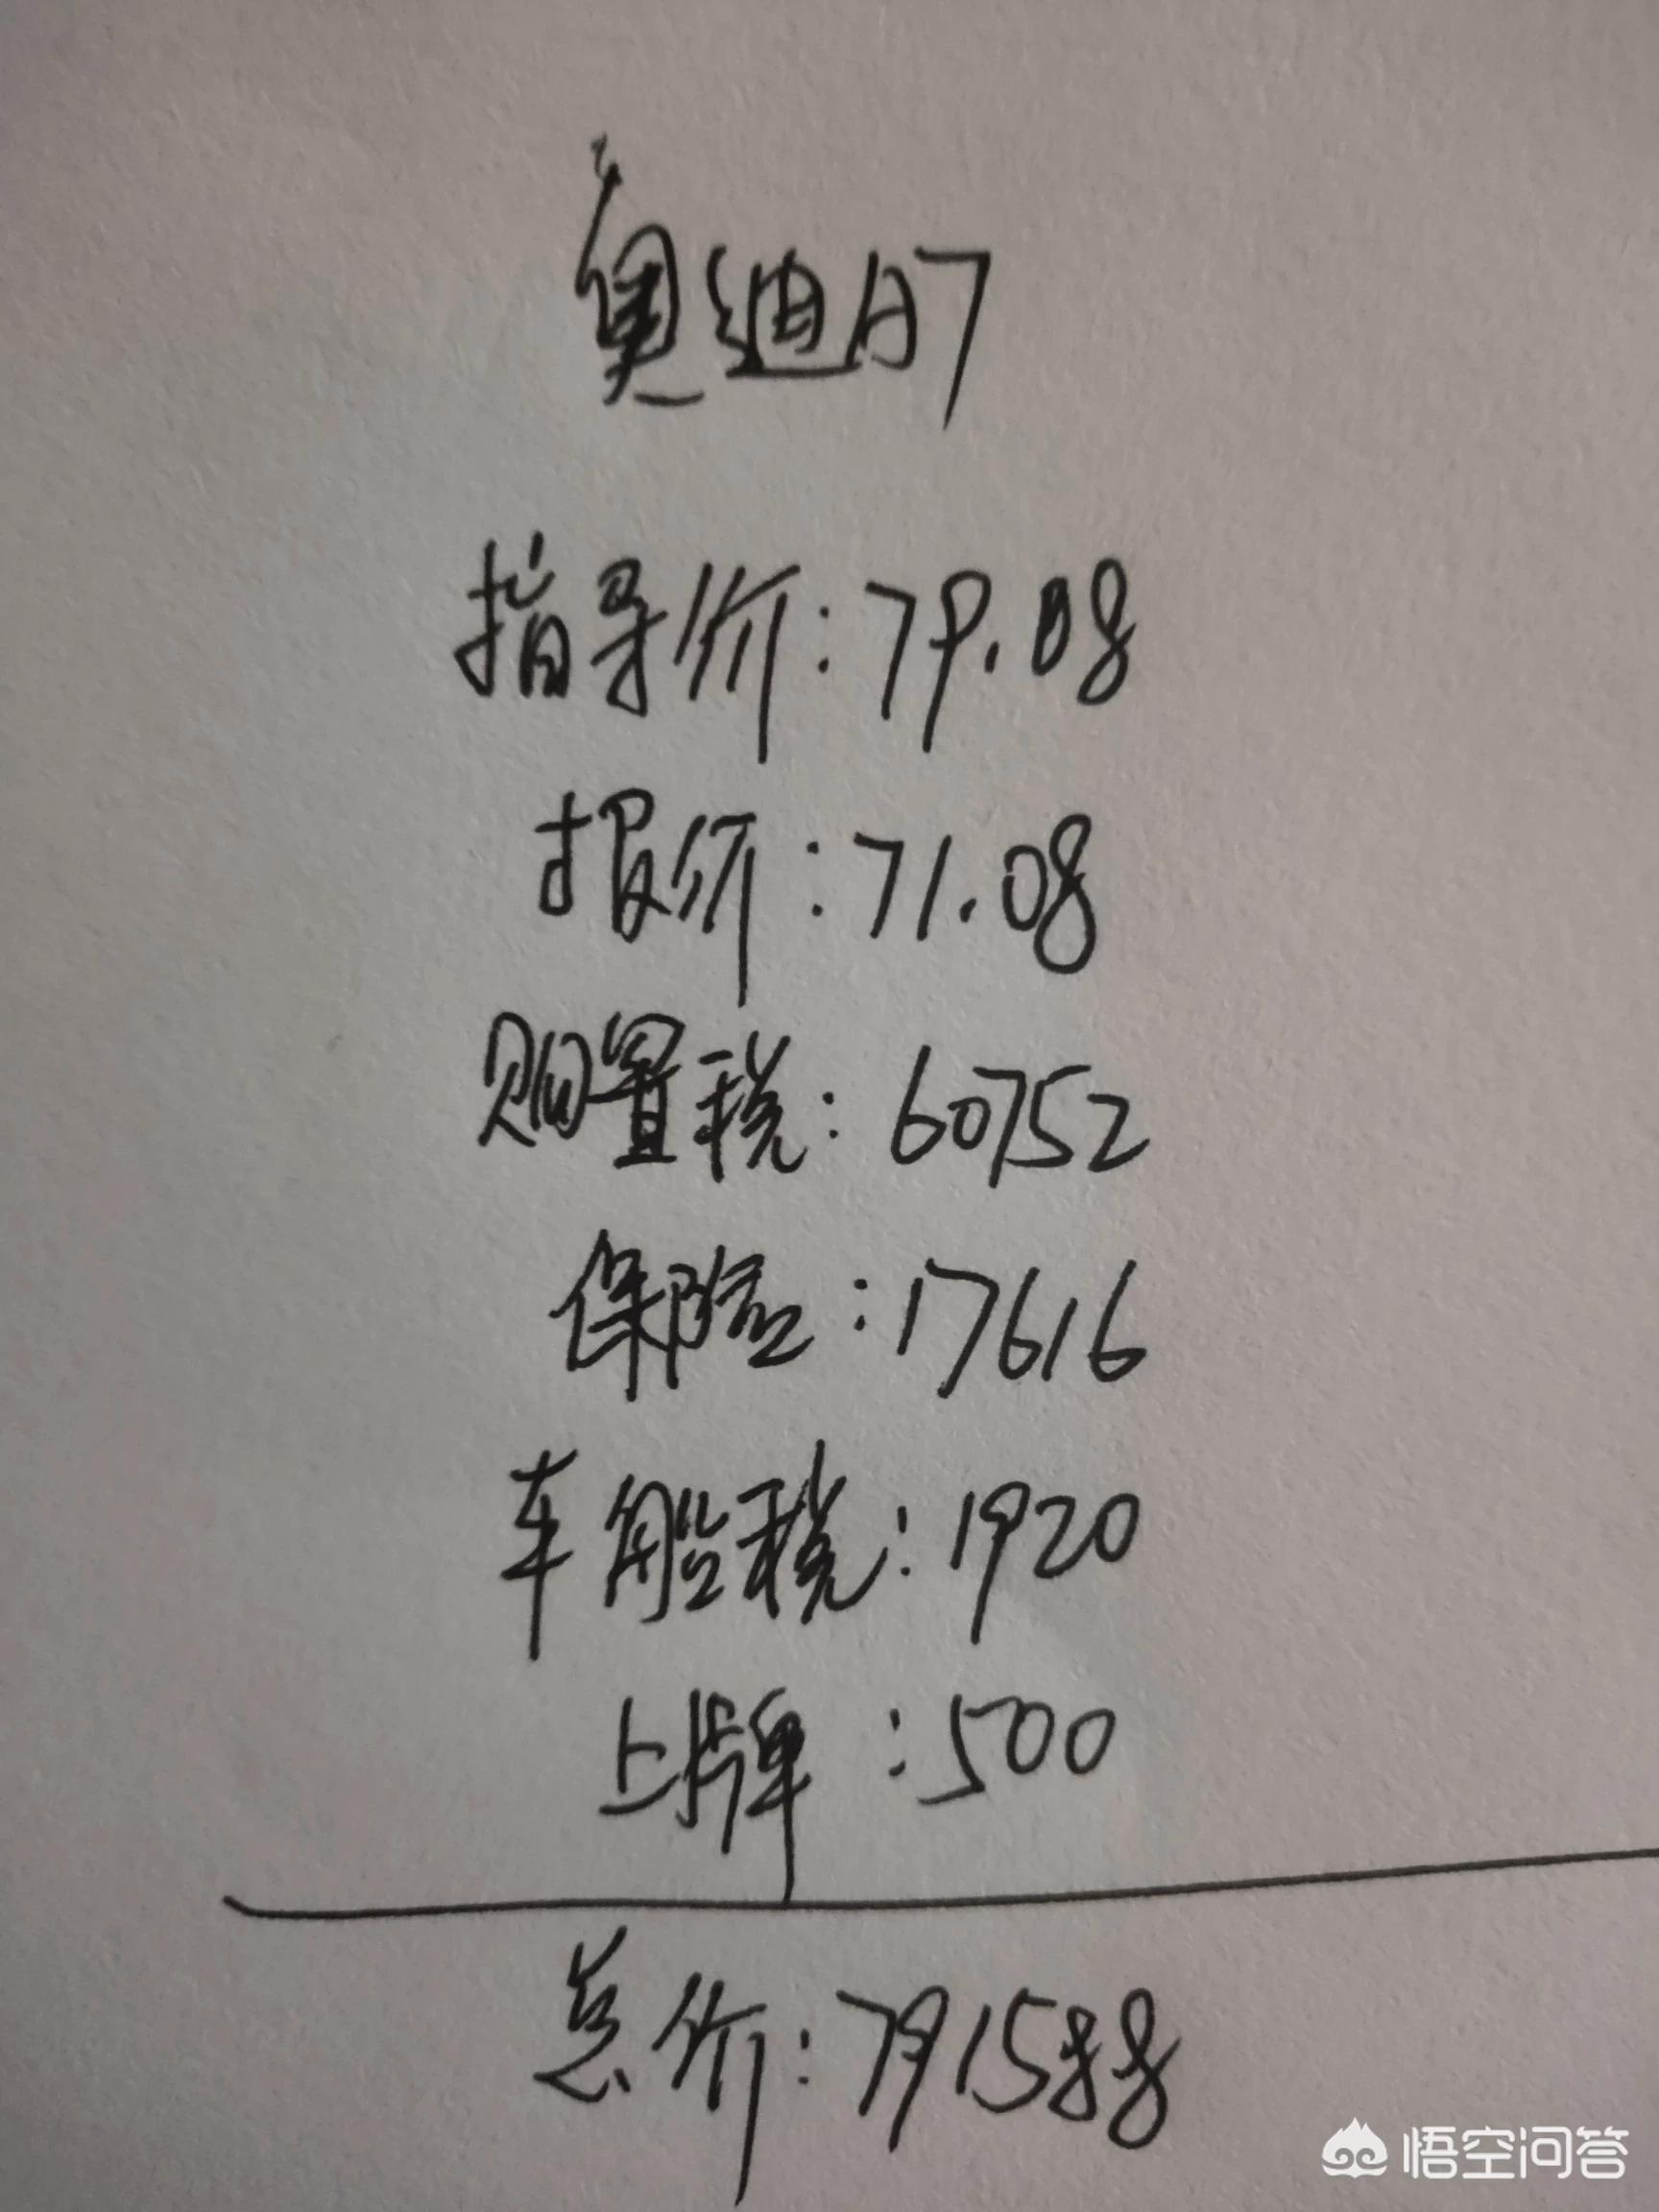 奥迪A7
指导价:79.08
报价:71.08
购置税:60752
保险:17616
车船税:1920
上牌:500
总价:791588
悟空问答